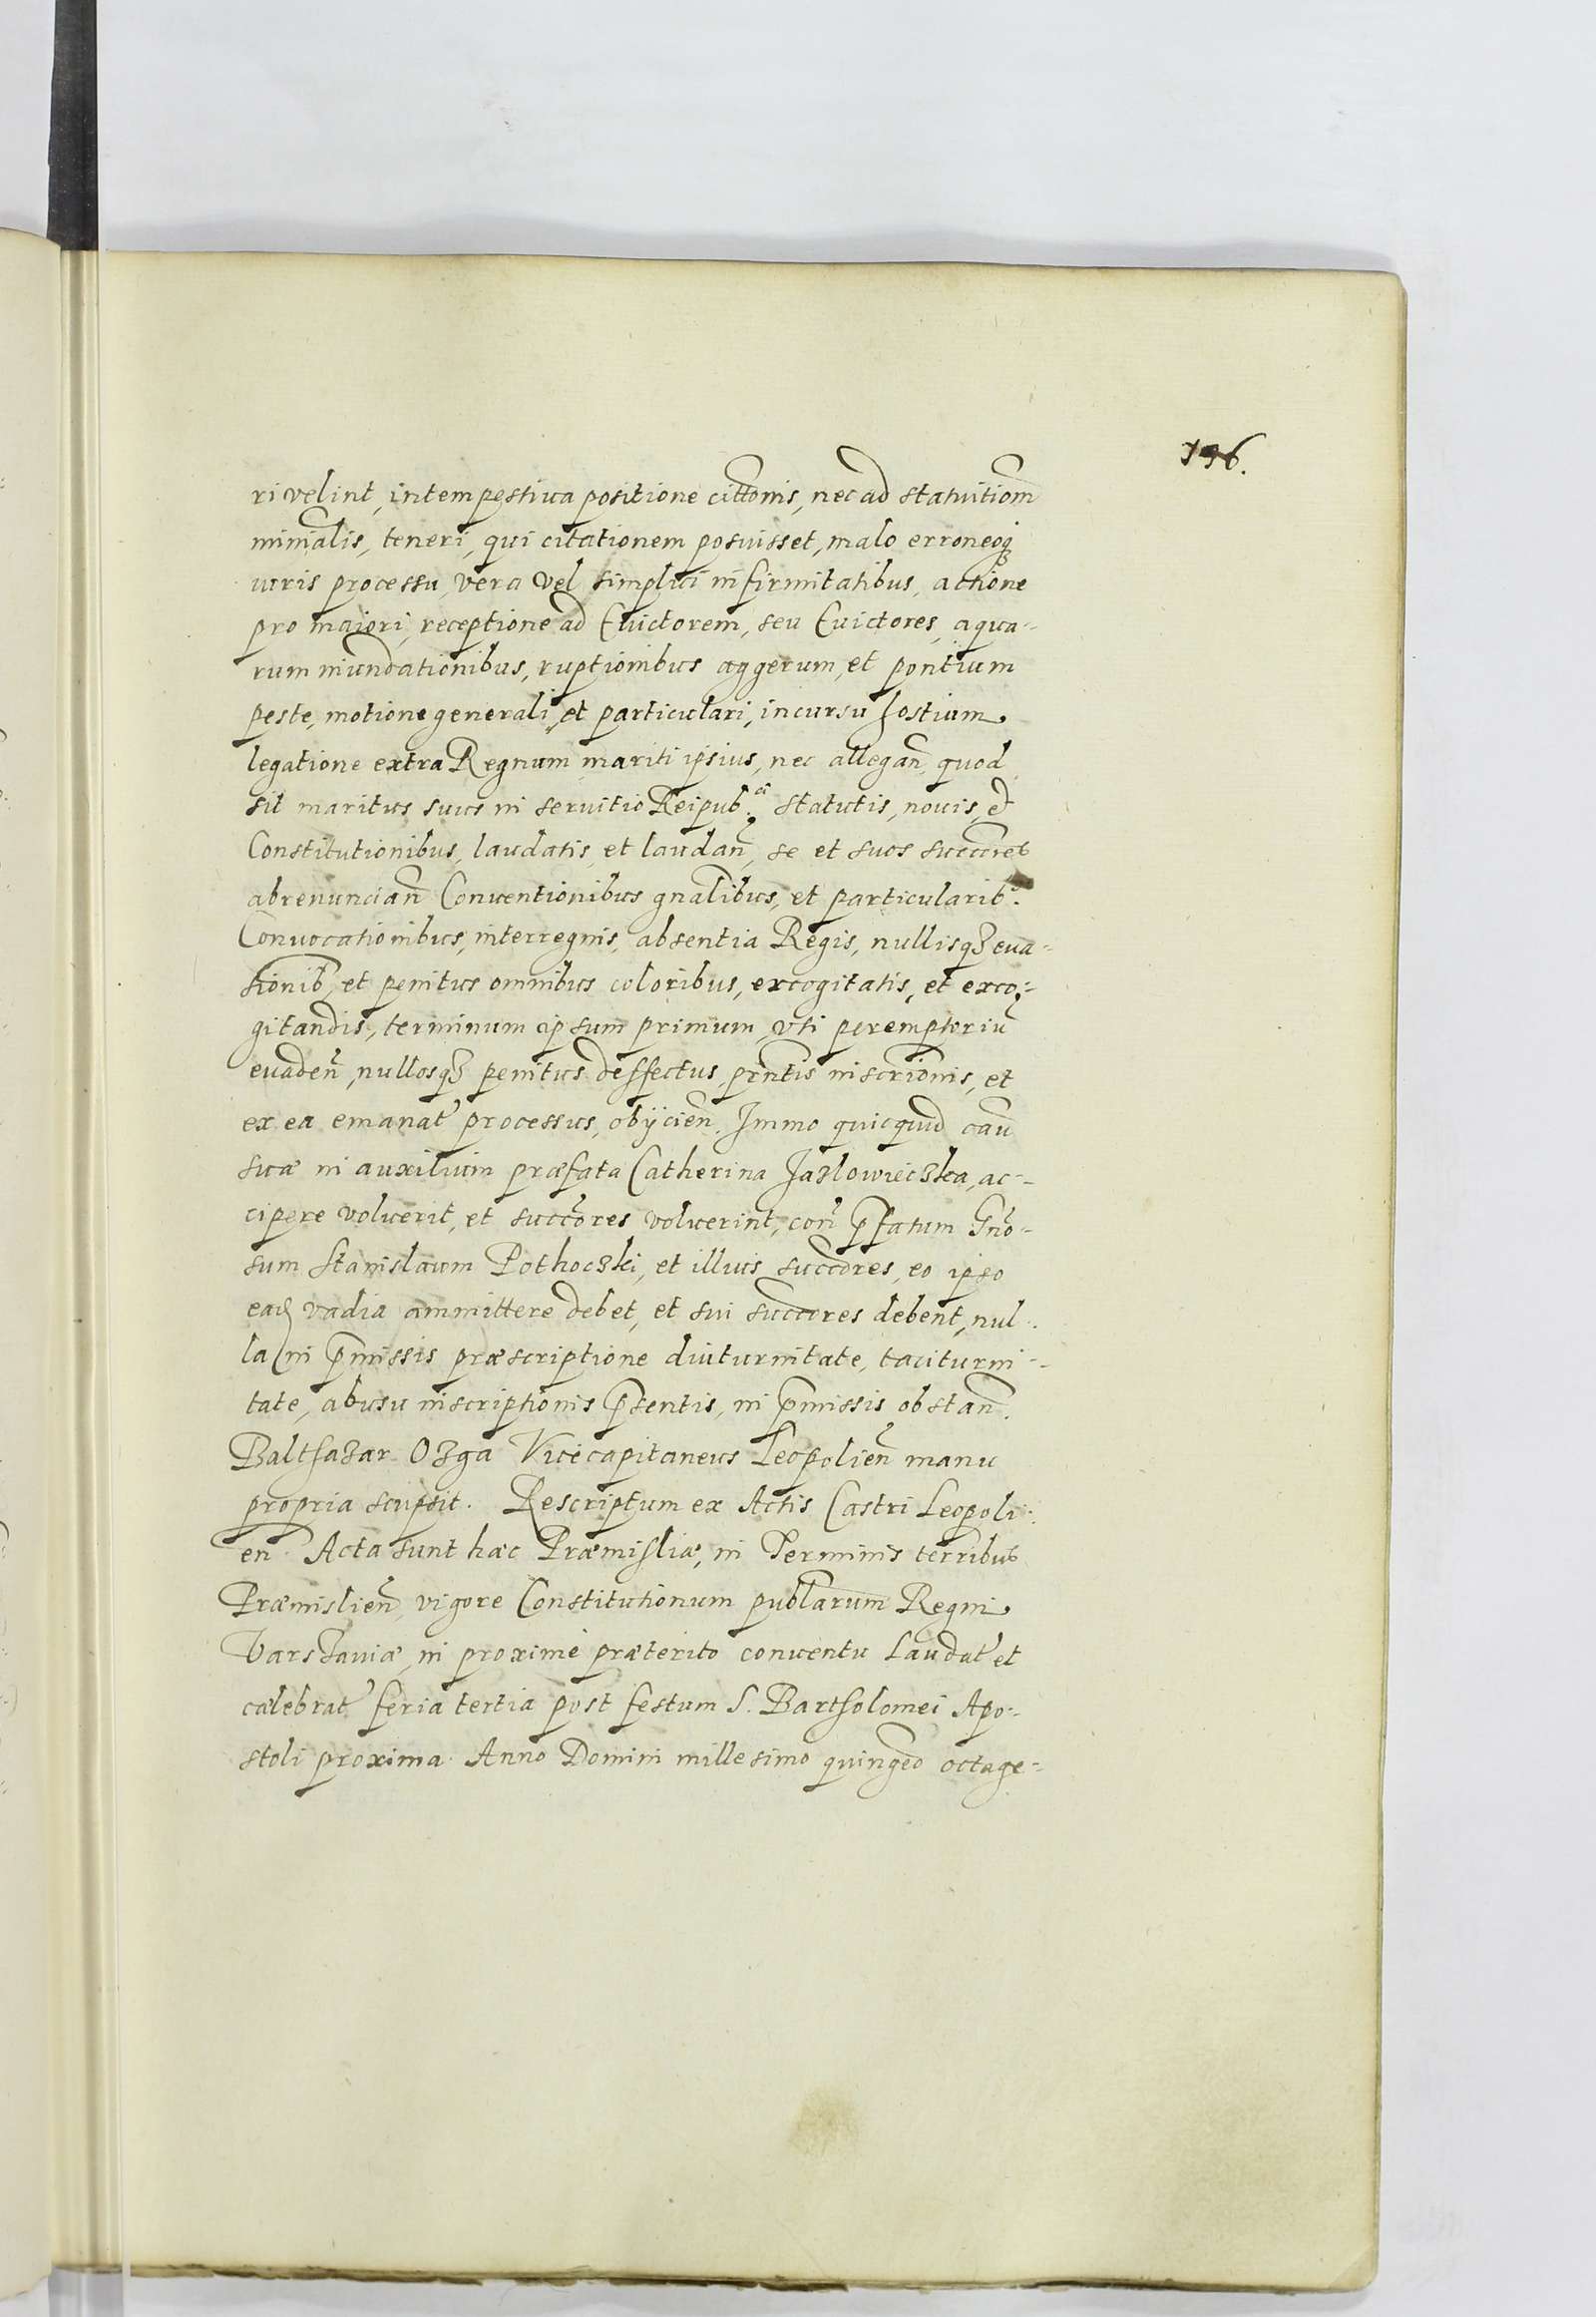 196.
ri velint, intempestiua positione cittõnis, nec ad statuitiom̃
minĩalis, teneri, qui citationem posuisset, malo erroneoq̃
iuris processu, vera vel simplici infirmitatibus, actione
pro maiori, receptione ad Euictorem, seu Euictores, aqua-
rum inundationibus, ruptionibus aggerum, et pontium
peste, motione generali, et particulari, incursu hostium
legatione extra Regnum mariti ipsius, nec allegañ quod
sit maritus suus in seruitio Reipub: statutis, nouis, et
Constitutionibus, laudatis, et laudañ, se et suos succẽores
abrenunciañ Conuentionibus gñalibus, et particularib:
Conuocationibus, interregnis, absentia Regis, nullisqȝ eua-
tionib̃, et penitus omnibus coloribus, excogitatis, et exco-
gitandis, terminum ipsum primum, vti peremptoriũ
euadeñ, nullosqȝ penitus deffectus, prñtis inscriõnis, et
ex ea emanat̃ processus, obijcieñ. Immo quicquid cau
suæ in auxilium præfata Catherina Jazlowieczka, ac-
cipere voluerit, et succõres voluerint, coñ p̃fatum Gño-
sum Stanislaum Pothoczki, et illius succõres, eo ipso
eađ vadia ammittere debet, et sui succõres debent, nul-
la in p̃missis præscriptione diuturnitate, taciturni-
tate, abusu inscriptionis p̃sentis, in p̃missis obstañ.
Balthazar Ozga Vicecapitaneus Leopolieñ manu
propria scripsit. Rescriptum ex Actis Castri Leopoli-
eñ. Acta sunt hæc Præmisliæ, in Terminis terribus
Præmislieñ, vigore Constitutionum publarum Regni
Varszauiæ, in proximè præterito conuentu Laudat̃ et
cælebrat̃ feria tertia post festum S. Bartholomei Apo-
stoli proxima. Anno Domini millesimo quingẽo octage-